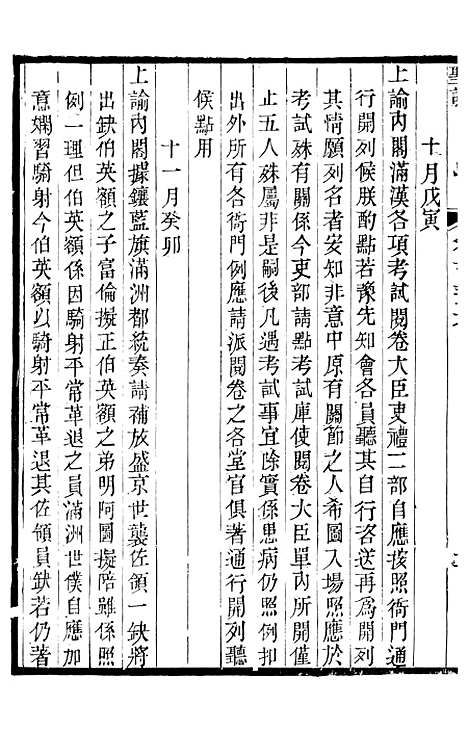 十月戊寅
上諭內閣滿漢各項考試閱卷大臣吏禮二部自應按照衙門通
行開列候朕酌點若豫先知會各員聽其自行咨送再為開列
其情願列名者安知非意中原有關節之人希圖入場照應於
考試殊有關係今吏部請點考試庫使閱卷大臣單內所開列
止五人殊屬非是嗣後凡遇考試事宜除實係患病仍照例扣
出外所有各衙門例應請派閱卷之各堂官俱著通行開列聽
候點用
十一月癸卯
上諭內閣據鑲藍旗滿洲都統奏請補放盛京世襲佐領一缺將
出缺伯英額之子富倫擬正伯英額之弟明阿圖擬陪雖係照
例一理但伯英額係因騎射平常革退之員滿洲世僕自應加
意嫻習騎射今伯英額以騎射平常革退其佐領員缺若仍著